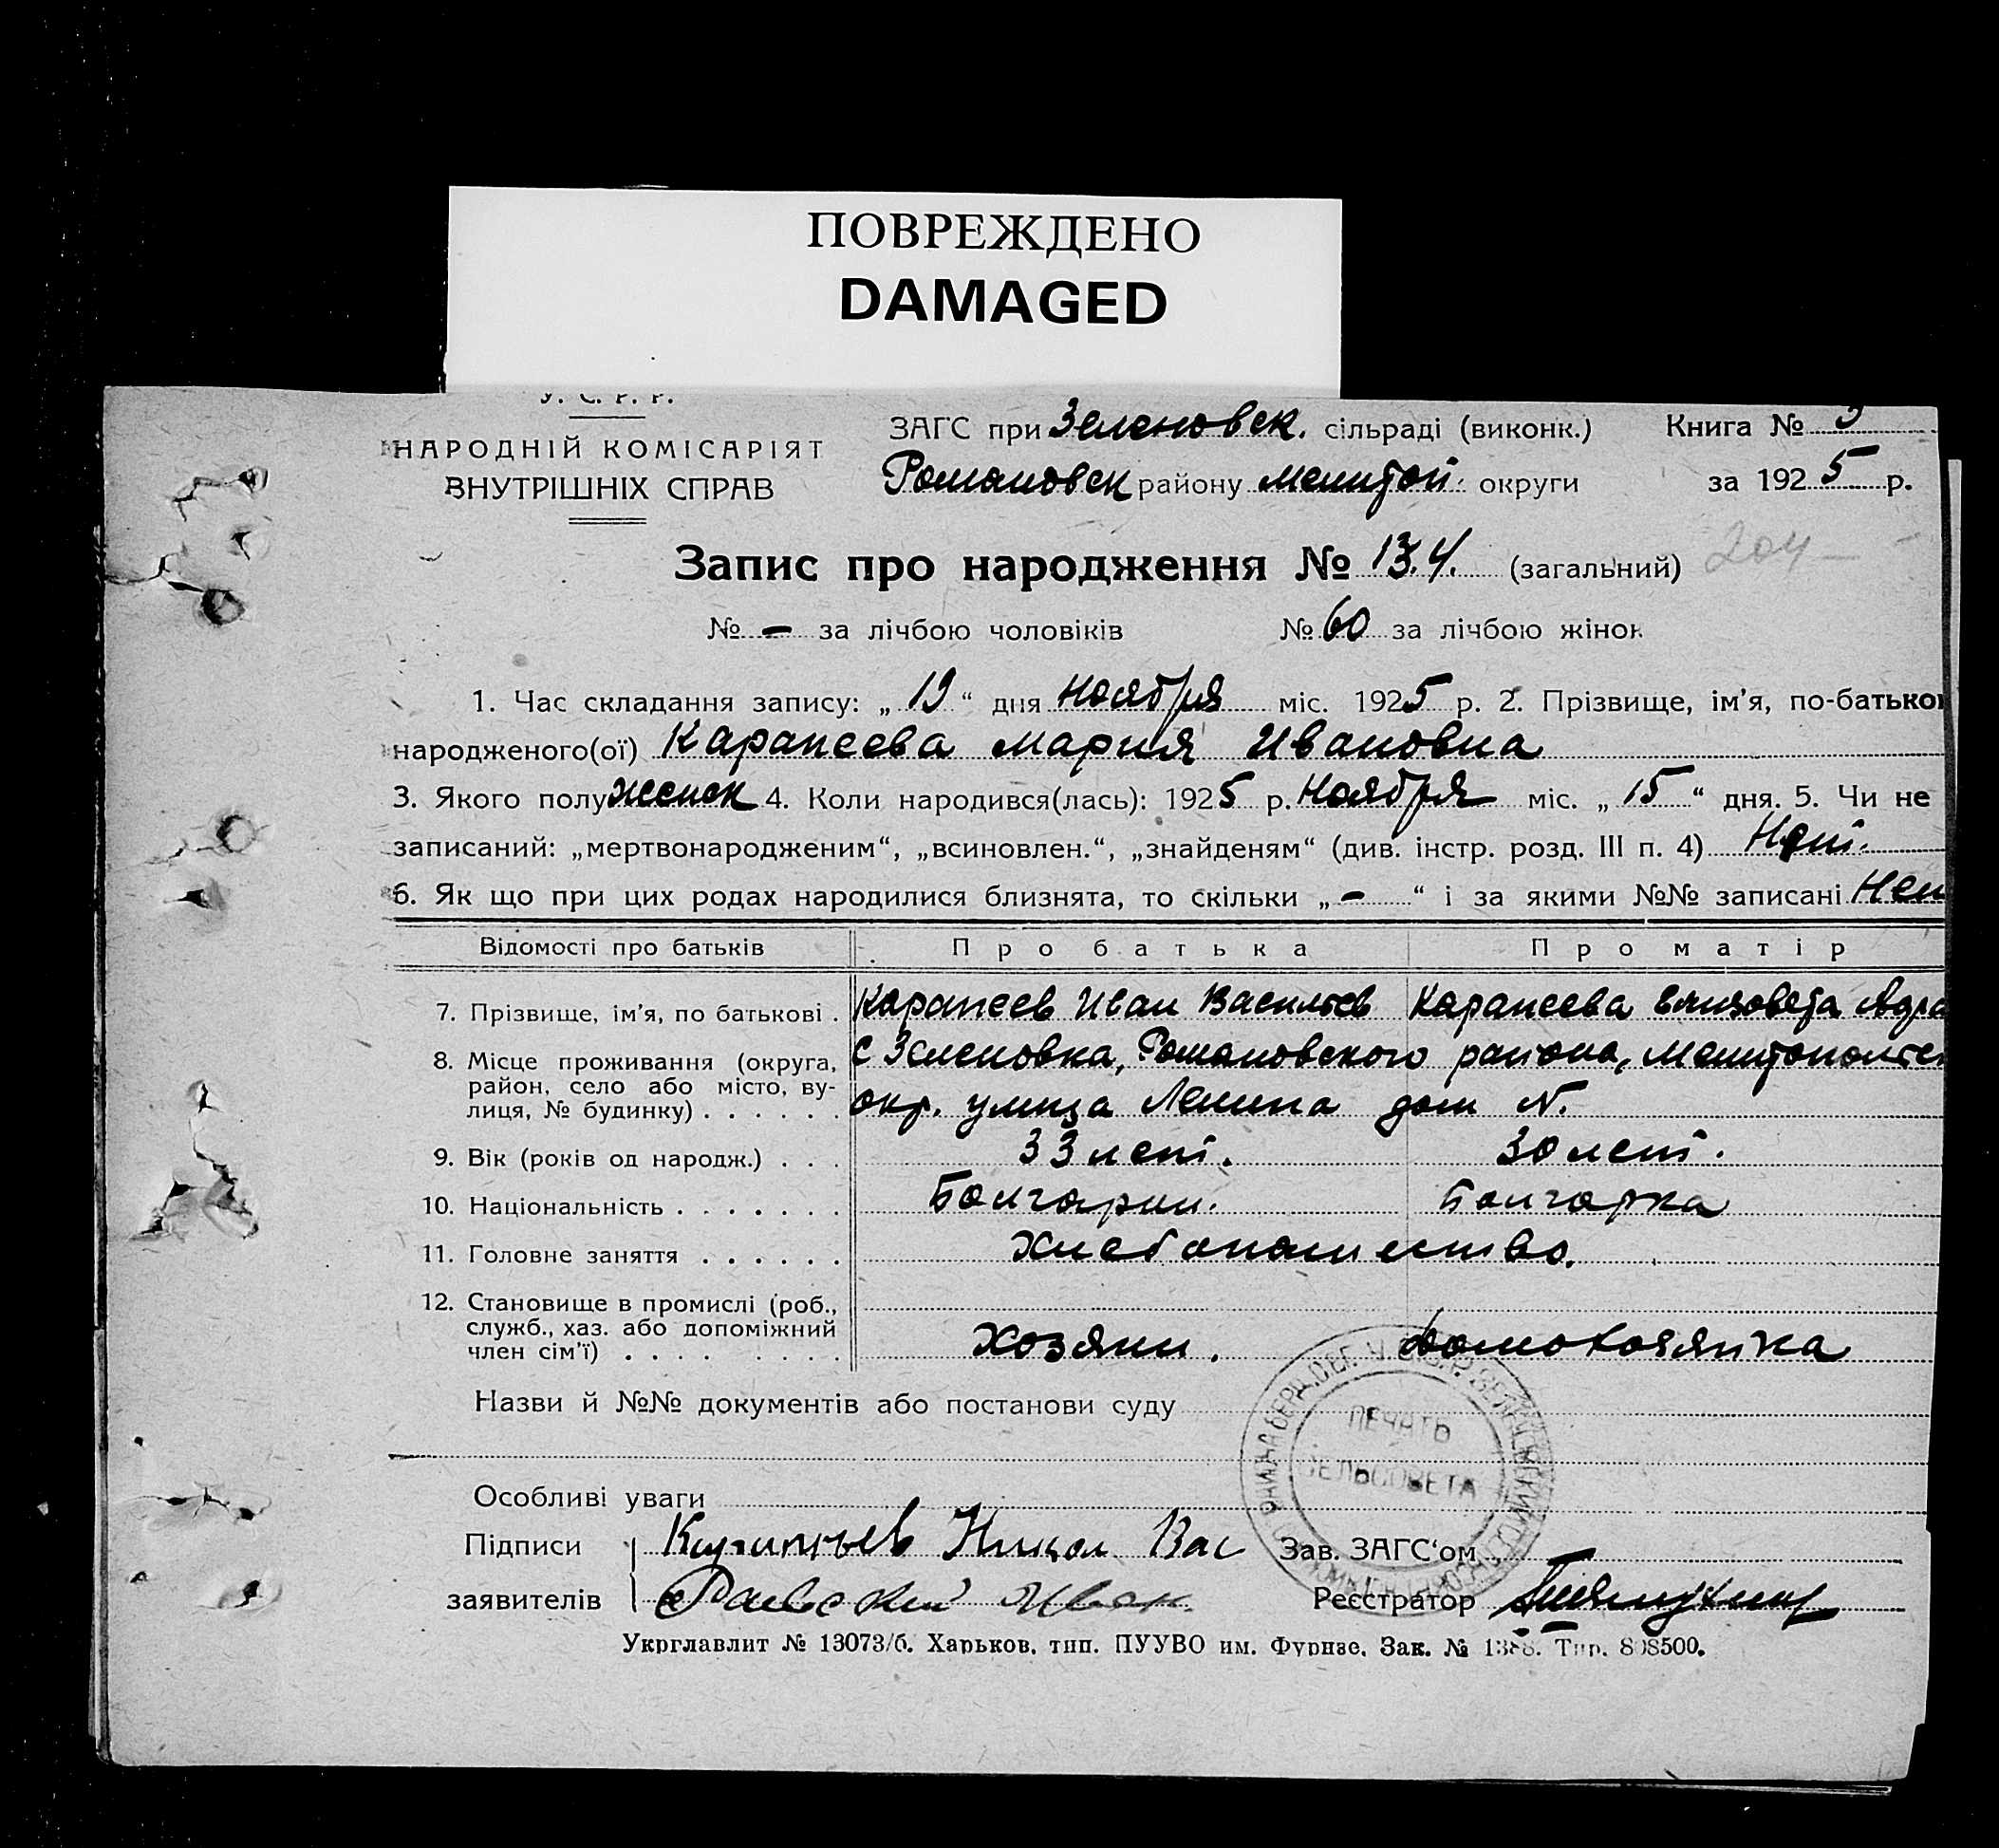 ПОВРЕЖДЕНО
DAMAGED
У. С. Р. Р.
НАРОДНІЙ КОМІСАРІЯТ
ВНУТРІШНІХ СПРАВ
ЗАГС при Зеленовск. сільраді (виконк.)
Романовск району Мелитой. округи
Книга № 3
за 1925 р.
Запис про народження № 134. (загальний)
204
№ - за лічбою чоловіків № 60 за лічбою жінок
1. Час складання запису: „19“ дня Ноября міс. 1925 р. 2. Прізвище, ім'я, по-батьков
народженого(ої) Карапеева Мария Ивановна
3. Якого полу женск 4. Коли народився(лась): 1925 р. Ноября міс. „15“ дня. 5. Чи не
записаний: „мертвонародженим“, „всиновлен.“, „знайденям“ (див. інстр. розд. III п. 4) Нет.
6. Як що при цих родах народилися близнята, то скільки „-“ і за якими №№ записані Нет
Відомості про батьків Про батька Про матір
7. Прізвище, ім'я, по батькові . Карапеев Иван Васильев Карапеева Елизовета Адра
8. Місце проживання (округа, район, село або місто, вулиця, № будинку) . . . . . .
с Зеленовка, Романовского района, Мелитопольск
окр. улица Ленина дом №.
9. Вік (років од народж.) . . . 33 лет. 30 лет.
10. Національність . . . . . . . Болгарин. Болгарка
11. Головне заняття . . . . . . Хлебопашество.
12. Становище в промислі (роб.,
служб., хаз. або допоміжний
член сім'ї) . . . . . . . . Хозяин. Домохозяйка
Назви й №№ документів або постанови суду
ПЕЧАТЬ
СЕЛЬСОВЕТА
Особливі уваги
Підписи Никол Вас Зав. ЗАГС'ом
заявителів Раевский Иван. Реєстратор
Укрглавлит № 13073/б. Харьков, тип. ПУУВО им. Фрунзе. Зак. № 1388. Тир. 808500.